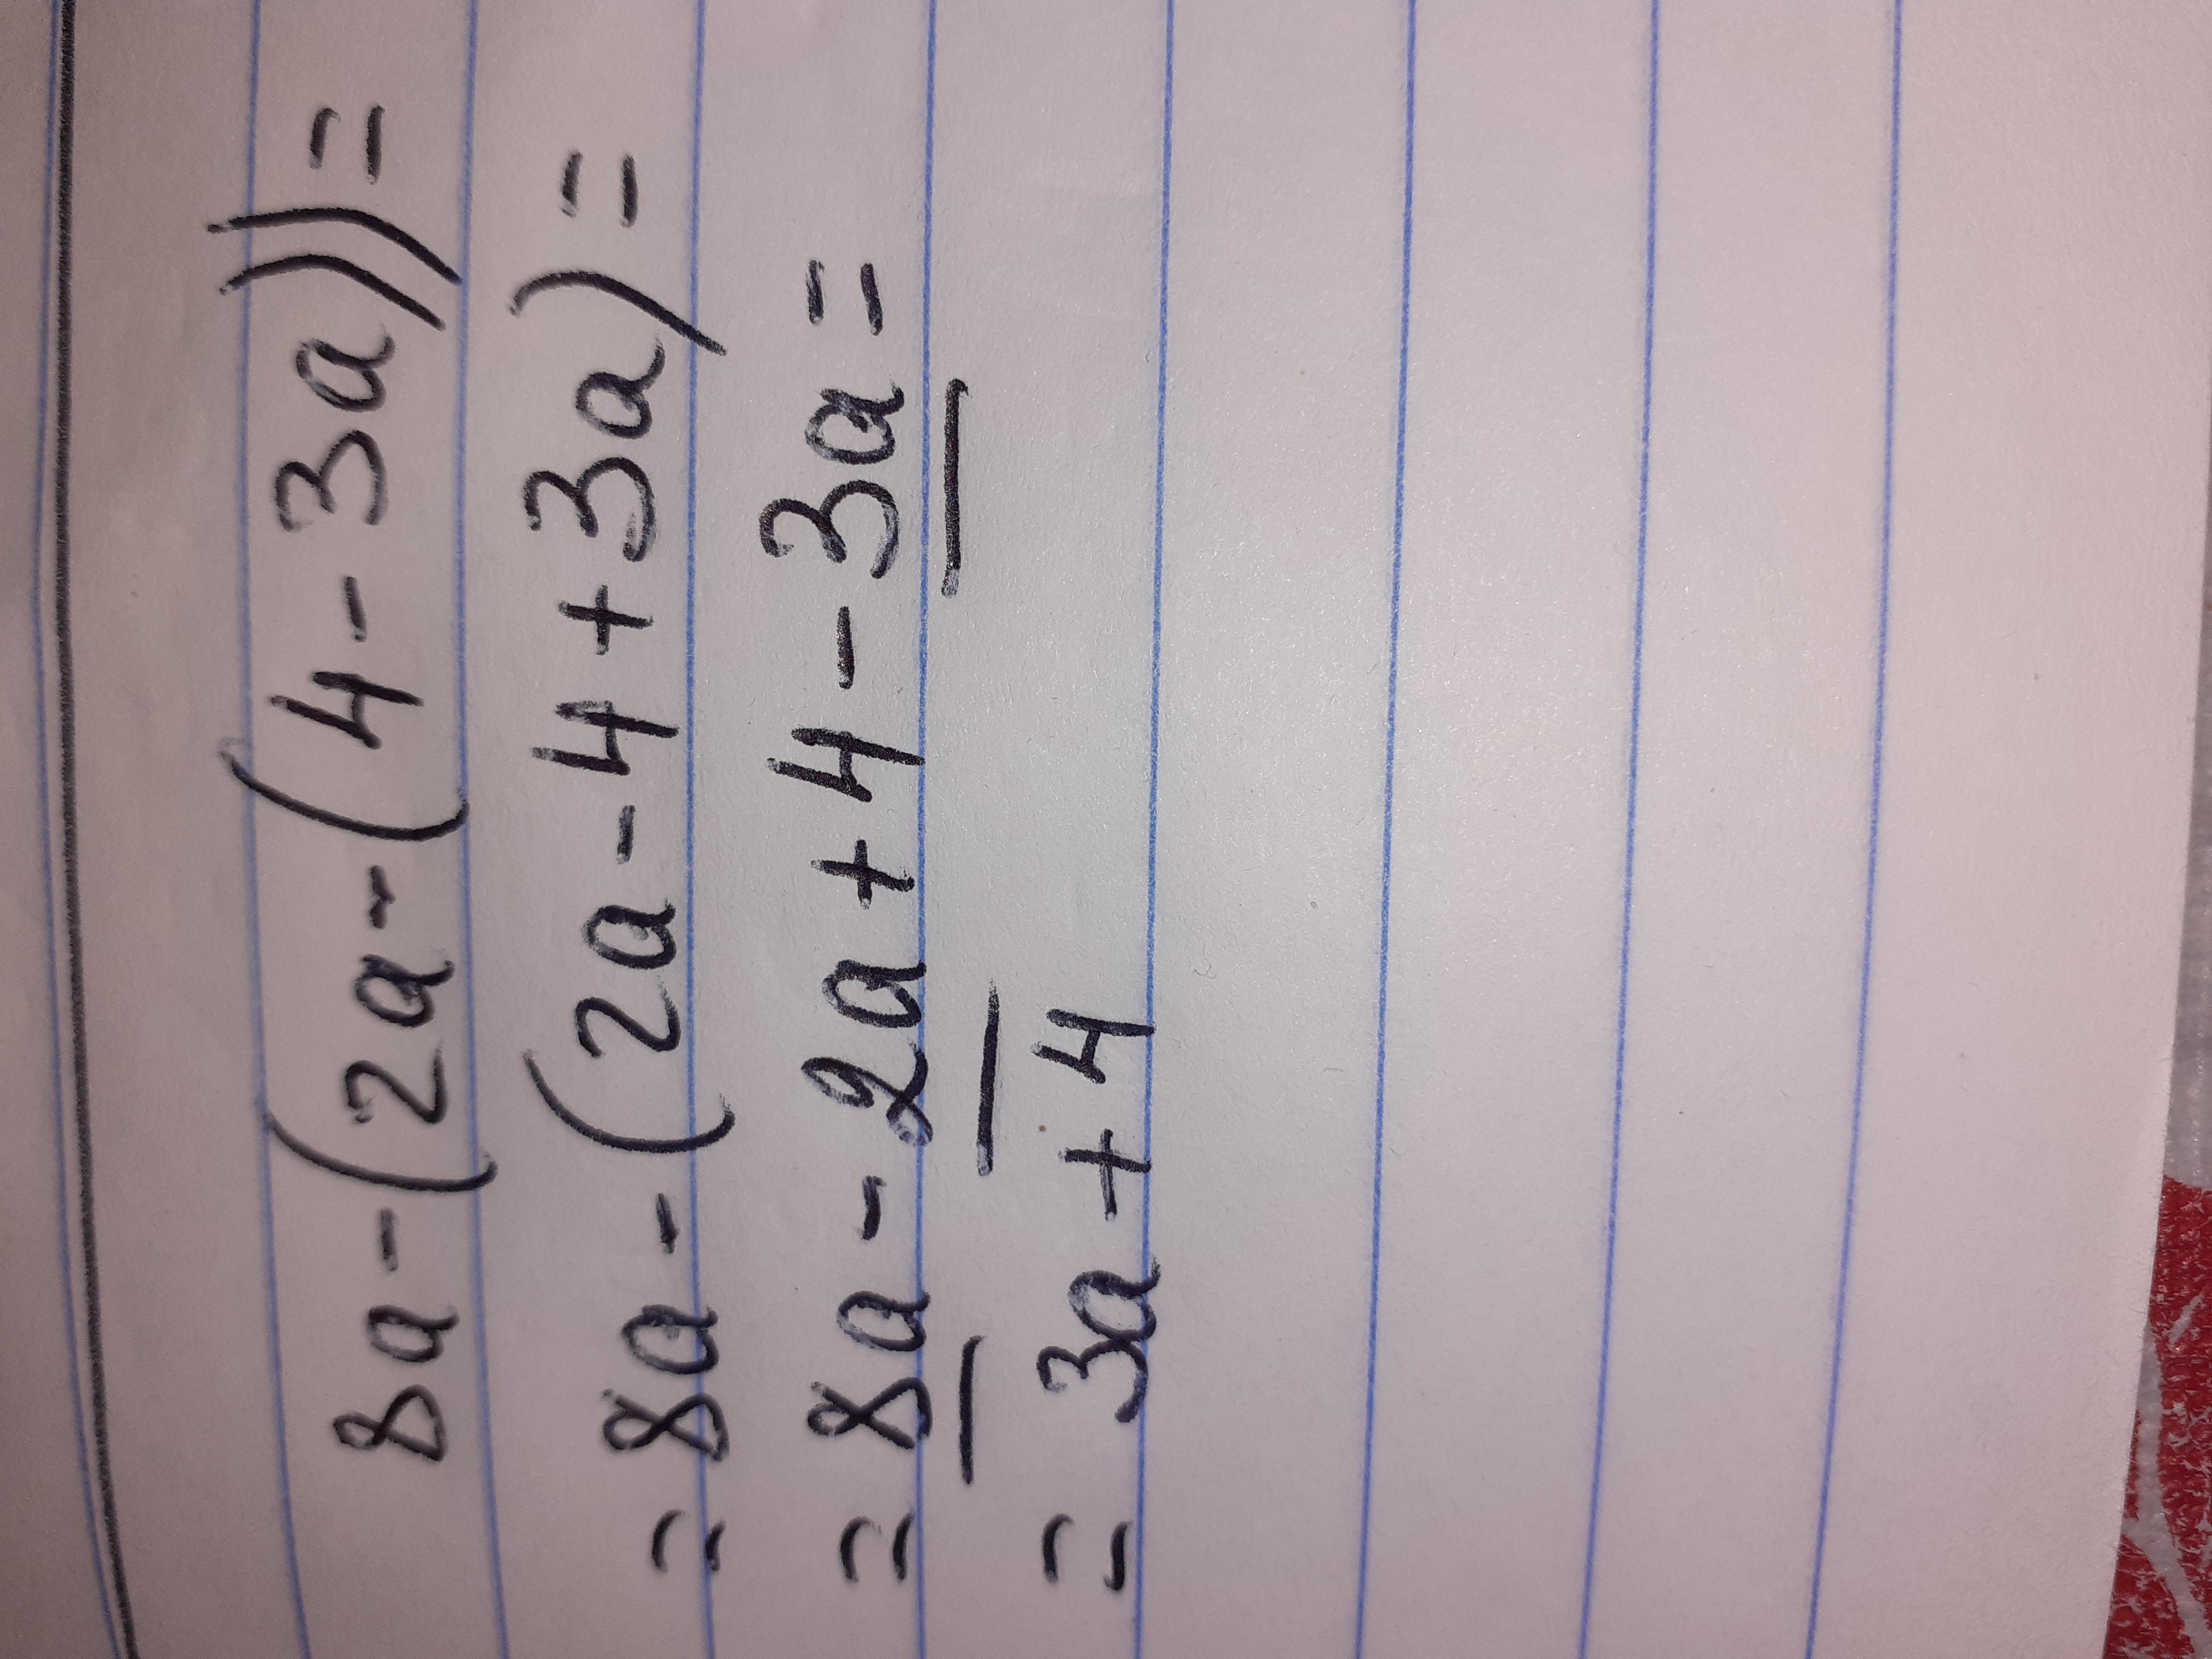 8a-(2a-(4-3a))=
=8a-(2a-4+3a)=
=8a-2a+4-3a=
=3a+4